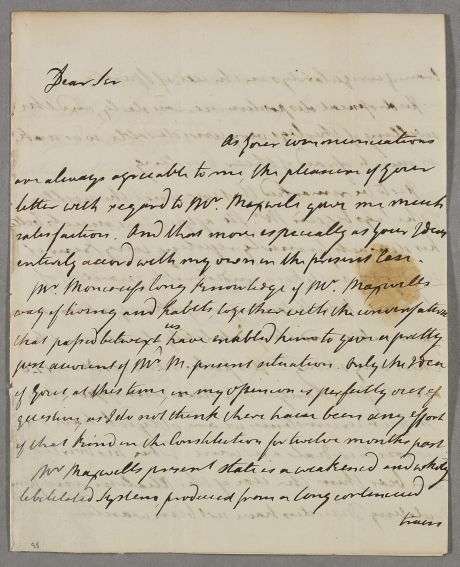 Dear Sir
As your communications
are always agreeable to me the pleasure of your
letter with regard to Mr. Maxwels gave me much
satisfaction. And that more especially as your Ideas
entirely accord with my own in the present Case.
Mr Moncriefs long knowledge of Mr. Maxwells
way of living and habits together with the conversation
that passed betwixt us have enabled him to give a pretty
just account of Mr. M. present situation. Only the Idea
of Gout at this time in my opinion is perfectly out of
question as I do not think there have been any effort
of that kind in the Constitution for twelve months past
Mr Maxwells present state is a weakened and wholly
debilitated System produced from a long continued
train